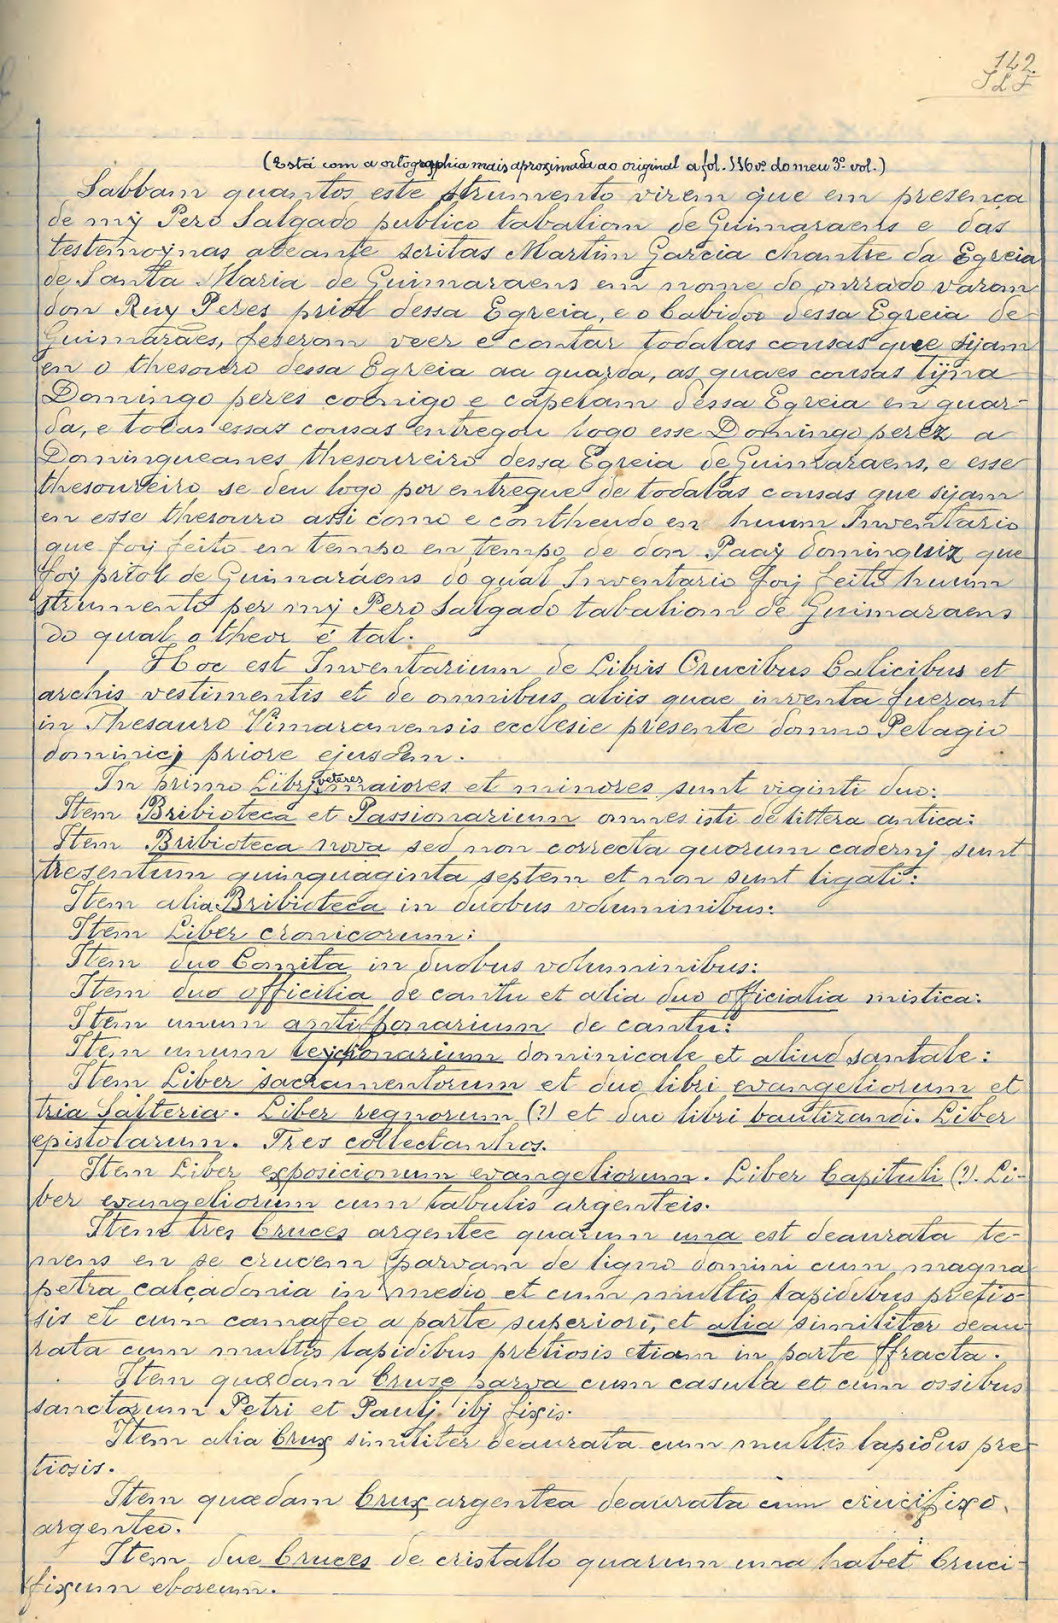 142
(Está com a ortographia mais aproximada ao original a fol. 116 vº do meu 3º vol.)
Sabbam quantos este strumento virem que em presença
de mỹ Pero Salgado publico tabaliom de Guimaraens e das
testemoynas adeante scritas Martim Garcia chantre da Egreia
de Santa Maria de Guimaraens em nome do onrrado varom
don Ruy Peres priol dessa Egreia, e o Cabidoo dessa Egreia de
Guimarães, feseron veer e contar todalas cousas que sijam
en o thesouro dessa Egreia aa guarda, as quaes cousas tijna
Domingo peres coonigo e capelam dessa Egreia en guar-
da, e todas essas cousas entregou logo esse Domingo perez a
Domingueanes thesoureiro dessa Egreia de Guimaraens, e esse
thesoureiro se deu logo por entregue de todalas cousas que sijam
en esse thesouro assi como e contheudo en huum Inventario
que foy feito en tempo en tempo de don Paay dominguiz que
foy priol de Guimaráens do qual Inventario foy feito huum
strumento per mỹ Pero Salgado tabaliom de Guimaraens
do qual o theor é tal.
Hoc est Inventarium de Libris Crucibus Calicibus et
archis vestimentis et de omnibus aliis quae inventa fuerant
in Thesauro Vimaranensis ecclesie presente domno Pelagio
dominicj priore ejusdem.
In primo Librj veteres maiores et minores sunt viginti duo:
Item Bribioteca et Passionarium omnes isti de littera antica:
Item Bribioteca nova sed non correcta quorum cadernj sunt
tresentum quinquaginta septem et non sunt ligati:
Item alia Bribioteca in duobus voluminibus:
Item Liber cronicorum:
Item duo Comita in duobus voluminibus:
Item duo officilia de cantu et alia duo officialia mistica:
Item unum antifonarium de cantu:
Item unum leycionarium dominicale et aliud santale:
Item Liber sacramentorum et duo libri evangeliorum et
tria Salteria. Liber regnorum (?) et duo libri bautizandi. Liber
epistolarum. Tres collectanhos.
Item Liber exposicionum evangeliorum. Liber Capituli (?). Li-
ber evangeliorum cum tabulis argenteis.
Item tres Cruces argentee quarum una est deaurata te-
nens en se crucem parvam de ligno domini cum magna
petra calçadonia in medio et cum multis lapidibus pretio-
sis et cum camafeo a parte superiori, et alia similiter deau-
rata cum multis lapidibus pretiosis etiam in parte ffracta.
Item quædam Cruse parva cum casula et cum ossibus
sanctorum Petri et Paulj ibj fixis.
Item alia Crux similiter deaurata cum multis lapidus pre-
tiosis.
Item quædam Crux argentea deaurata cum crucifixo
argenteo.
Item due Cruces de cristallo quarum una habet Cruci-
fixum eboreum.